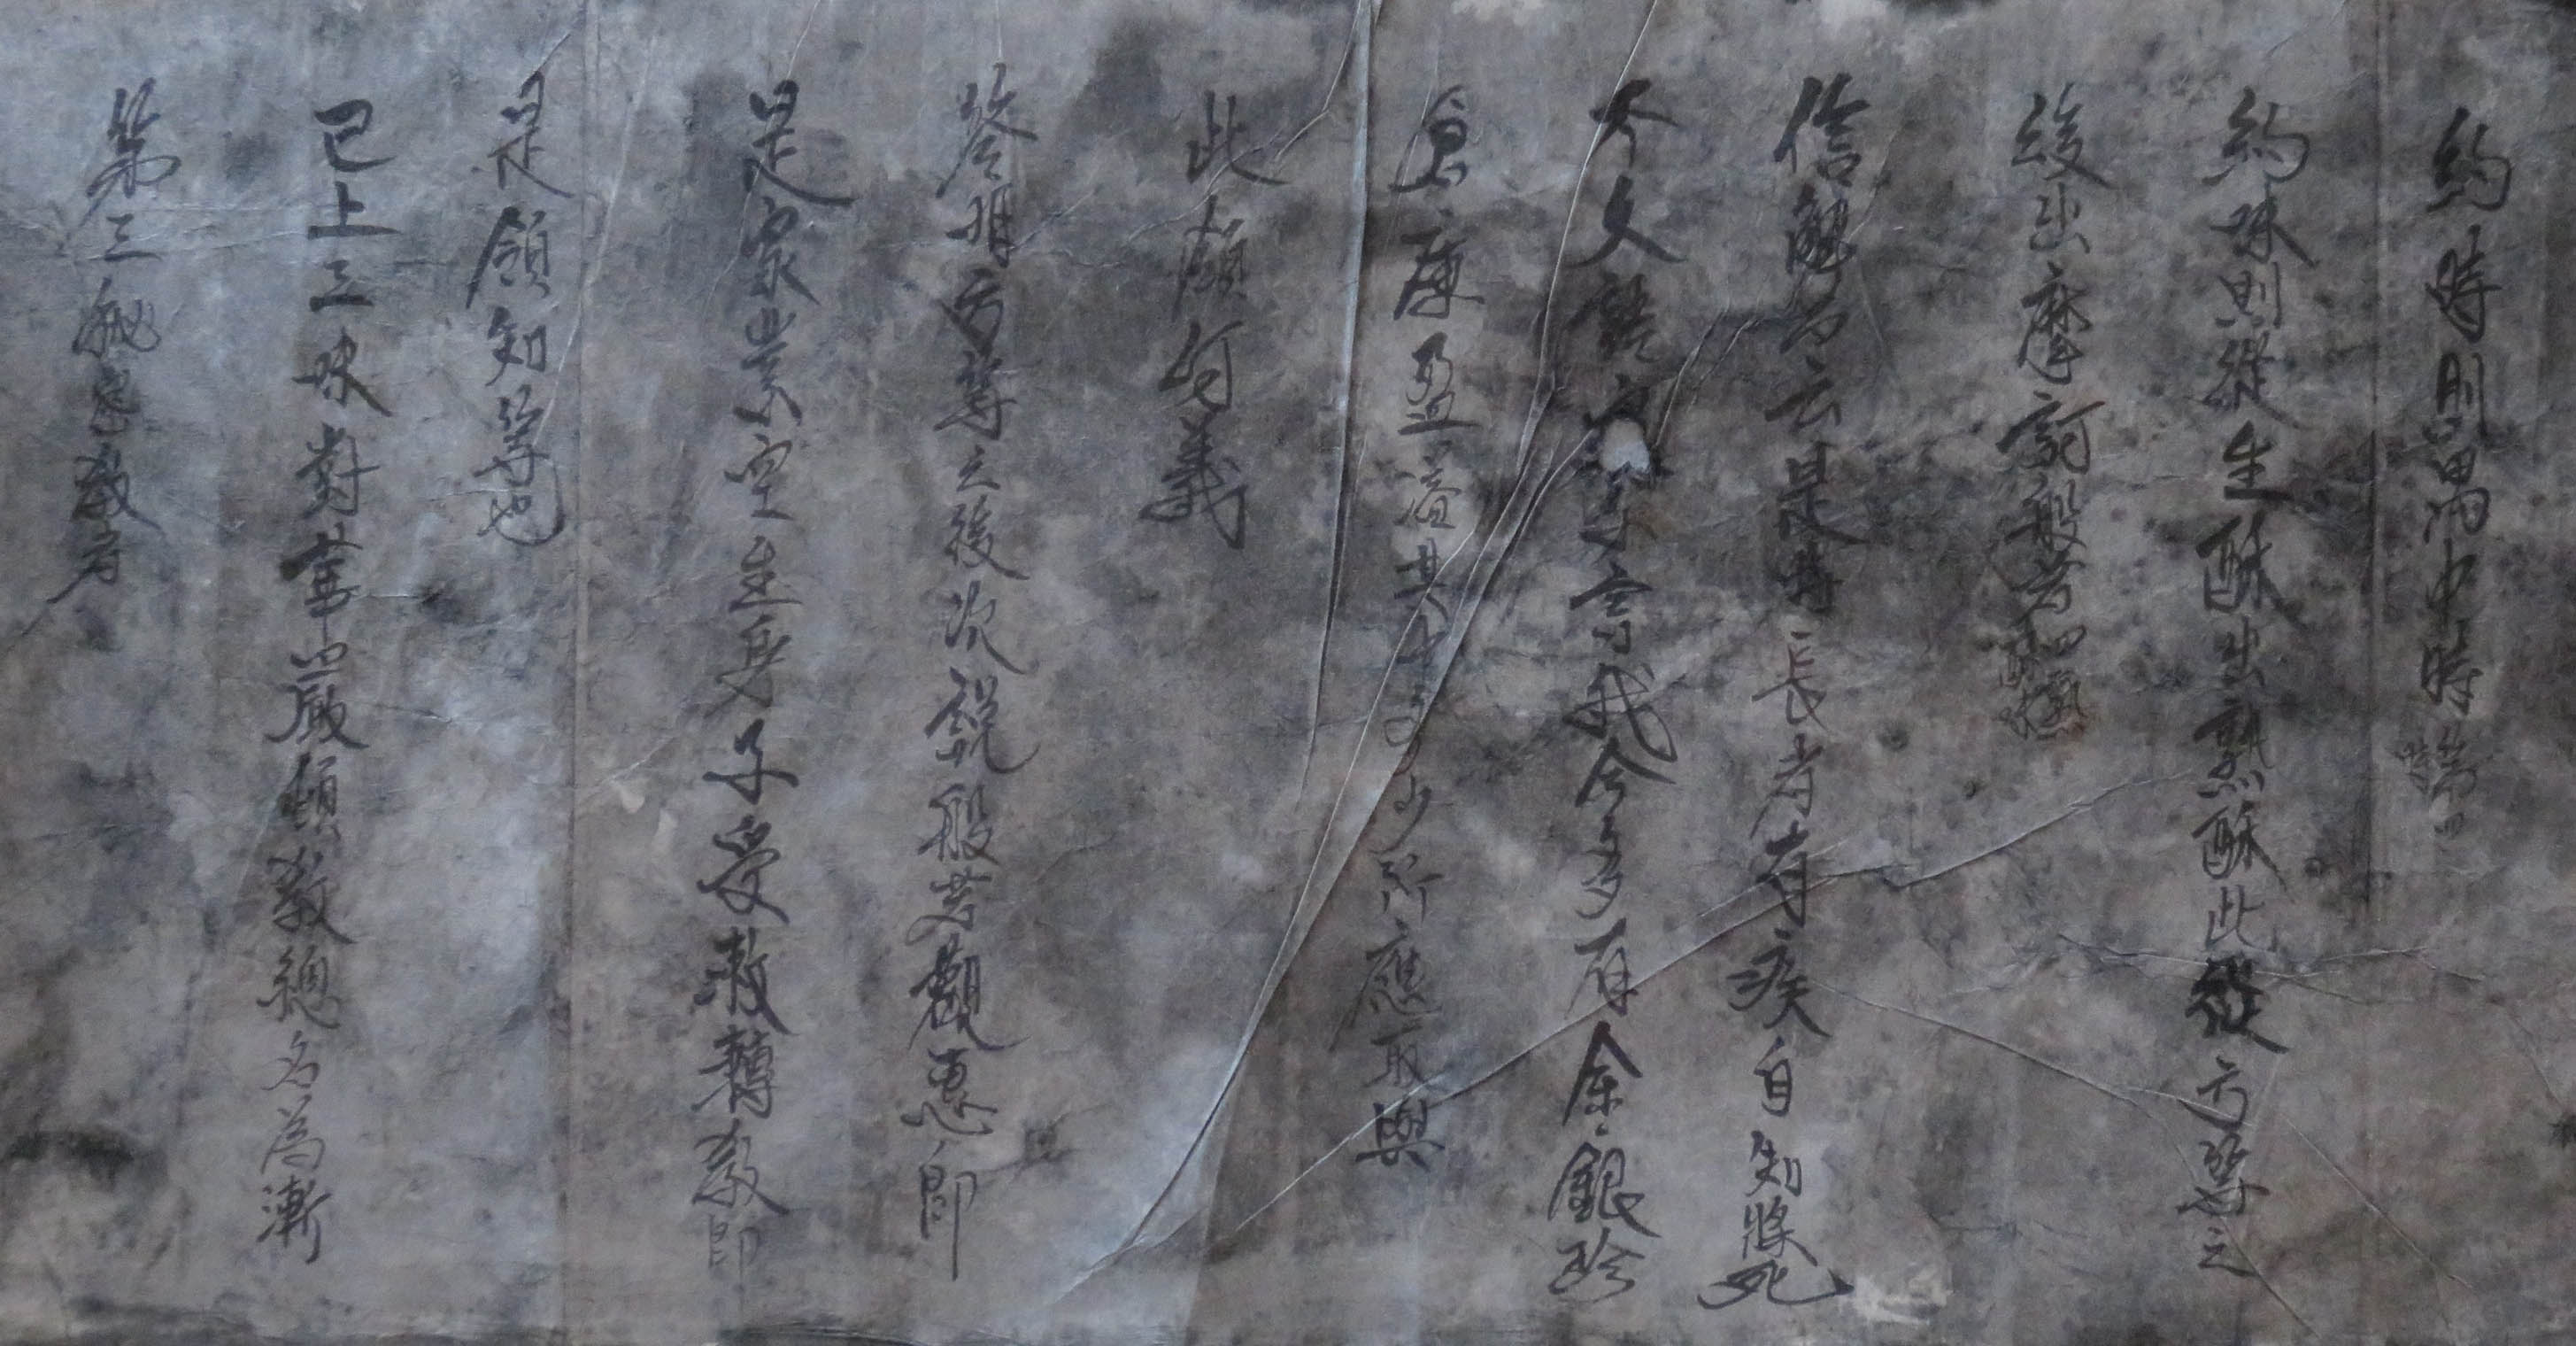 約時則禺中時第四時
約味則從生酥出熟酥此從方等之
後出摩訶般若四熟酥味
信解品云是時長者有疾自知將死
不久語子言我今多有金銀珍
庫盈溢其中多少所應取與
此領何義
答明方等之後次說般若觀惠即
是家業空生身子受敕轉教即
是領知等也
已上三味對華嚴頓教總名為漸
第三祕密教者